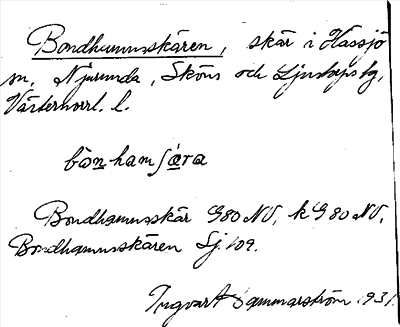 Bondhamnsskären, skär i Hässjö
sn, Njurunda, Sköns och Ljustorps tg,
Västernorrl. l.
bònhamʃæra
Bondhamnsskär G80 NV, k G 80 NV.
Bondhamnsskären Sj. 109.
Ingvart Hammarström 1931.